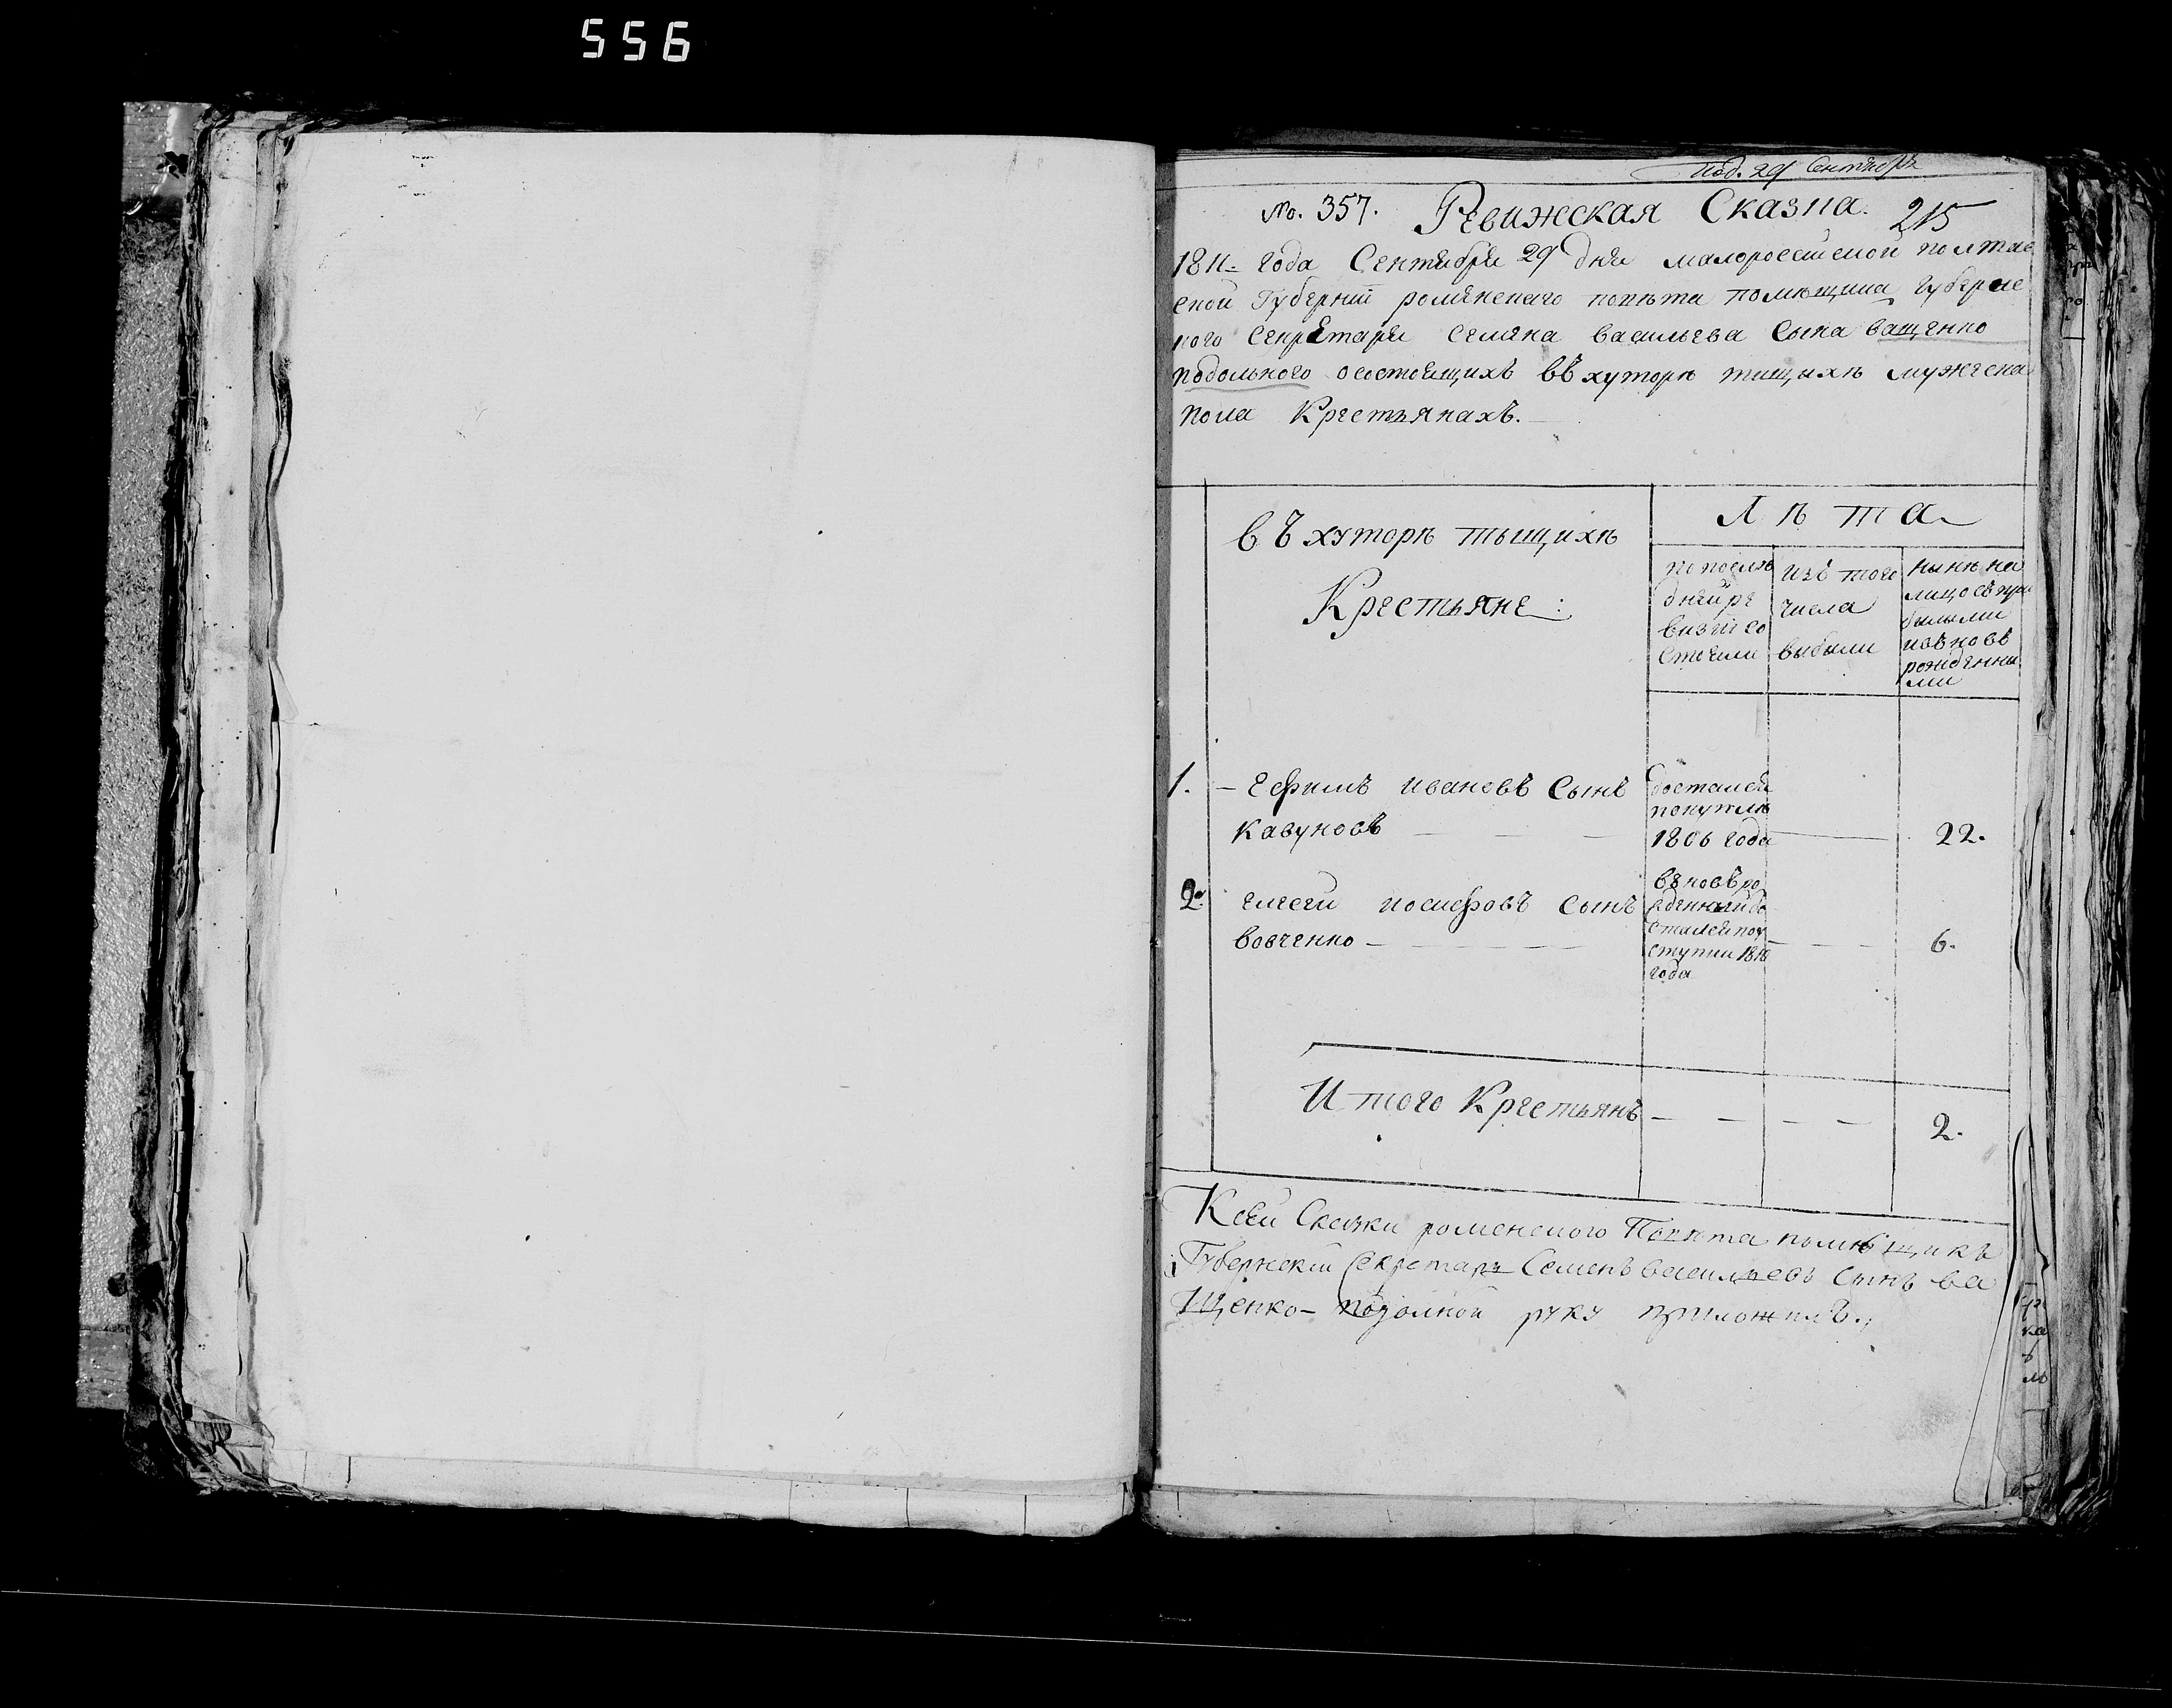 556
под. 29 Сентября
No. 357. Ревижская Сказка. 215
1811- года Сентября 29 дня малоросейской полтав
ской Губернии роменскаго повѣта помѣщика Губернс
кого Секретаря Семена васильева Сына ващенко
подольного осостоящихъ ввхуторѣ тищихѣ мужеска
пола Крестьянахъ.
Лѣта
въ хуторѣ тыщихѣ
Крестьяне:
по послѣ
дней ре
визіи со
стояли
изъ того
числа
выбыли
нынѣ на
лицо съ при
былыми
ивновв
рожденны
ми
1. - Ефимъ ивановъ Сынъ
кавуновъ
достался
покупкѣ
1806 года
22.
2. елесеи иосифовъ Сынъ
вовченко
вновь ро
жденный до
стался поу
ступки 1810
года
6.
Итого Крестьянъ - - - - 2.
Ксей Сказки роменского Повѣта помѣщикъ
Губернский Секретарь Семенъ васильевъ Сынъ ва
Щенко-Подолной руку приложилъ.,